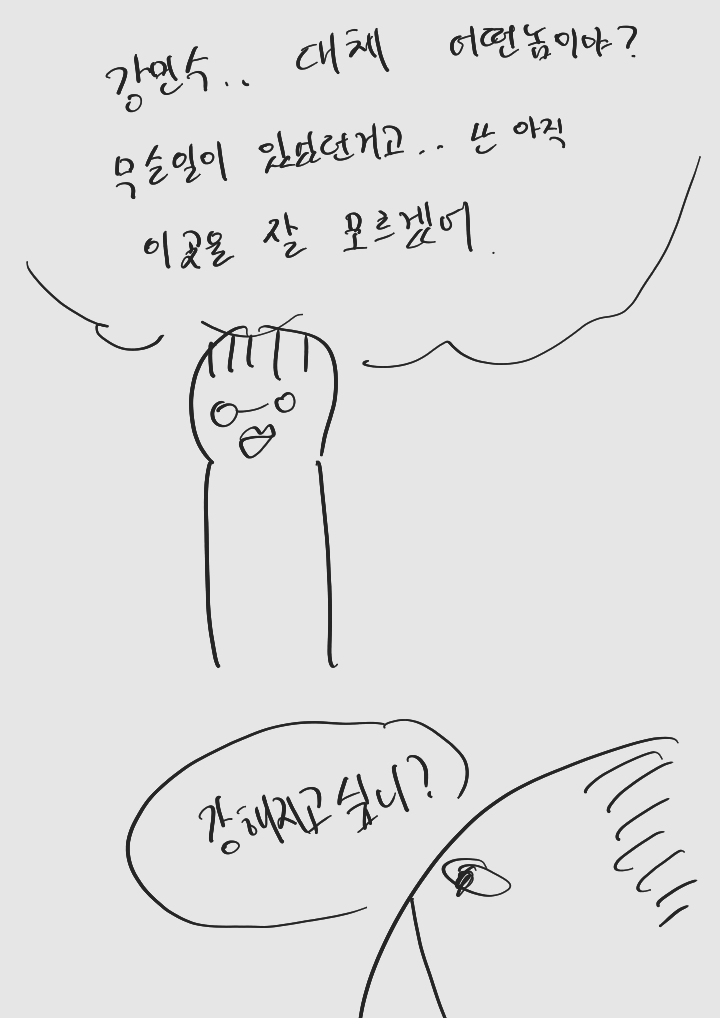 강민수.. 대체 어떤놈이야?
무슨일이 있었던거고.. 난 아직
이곳을 잘 모르겠어.
강해지고싶니?